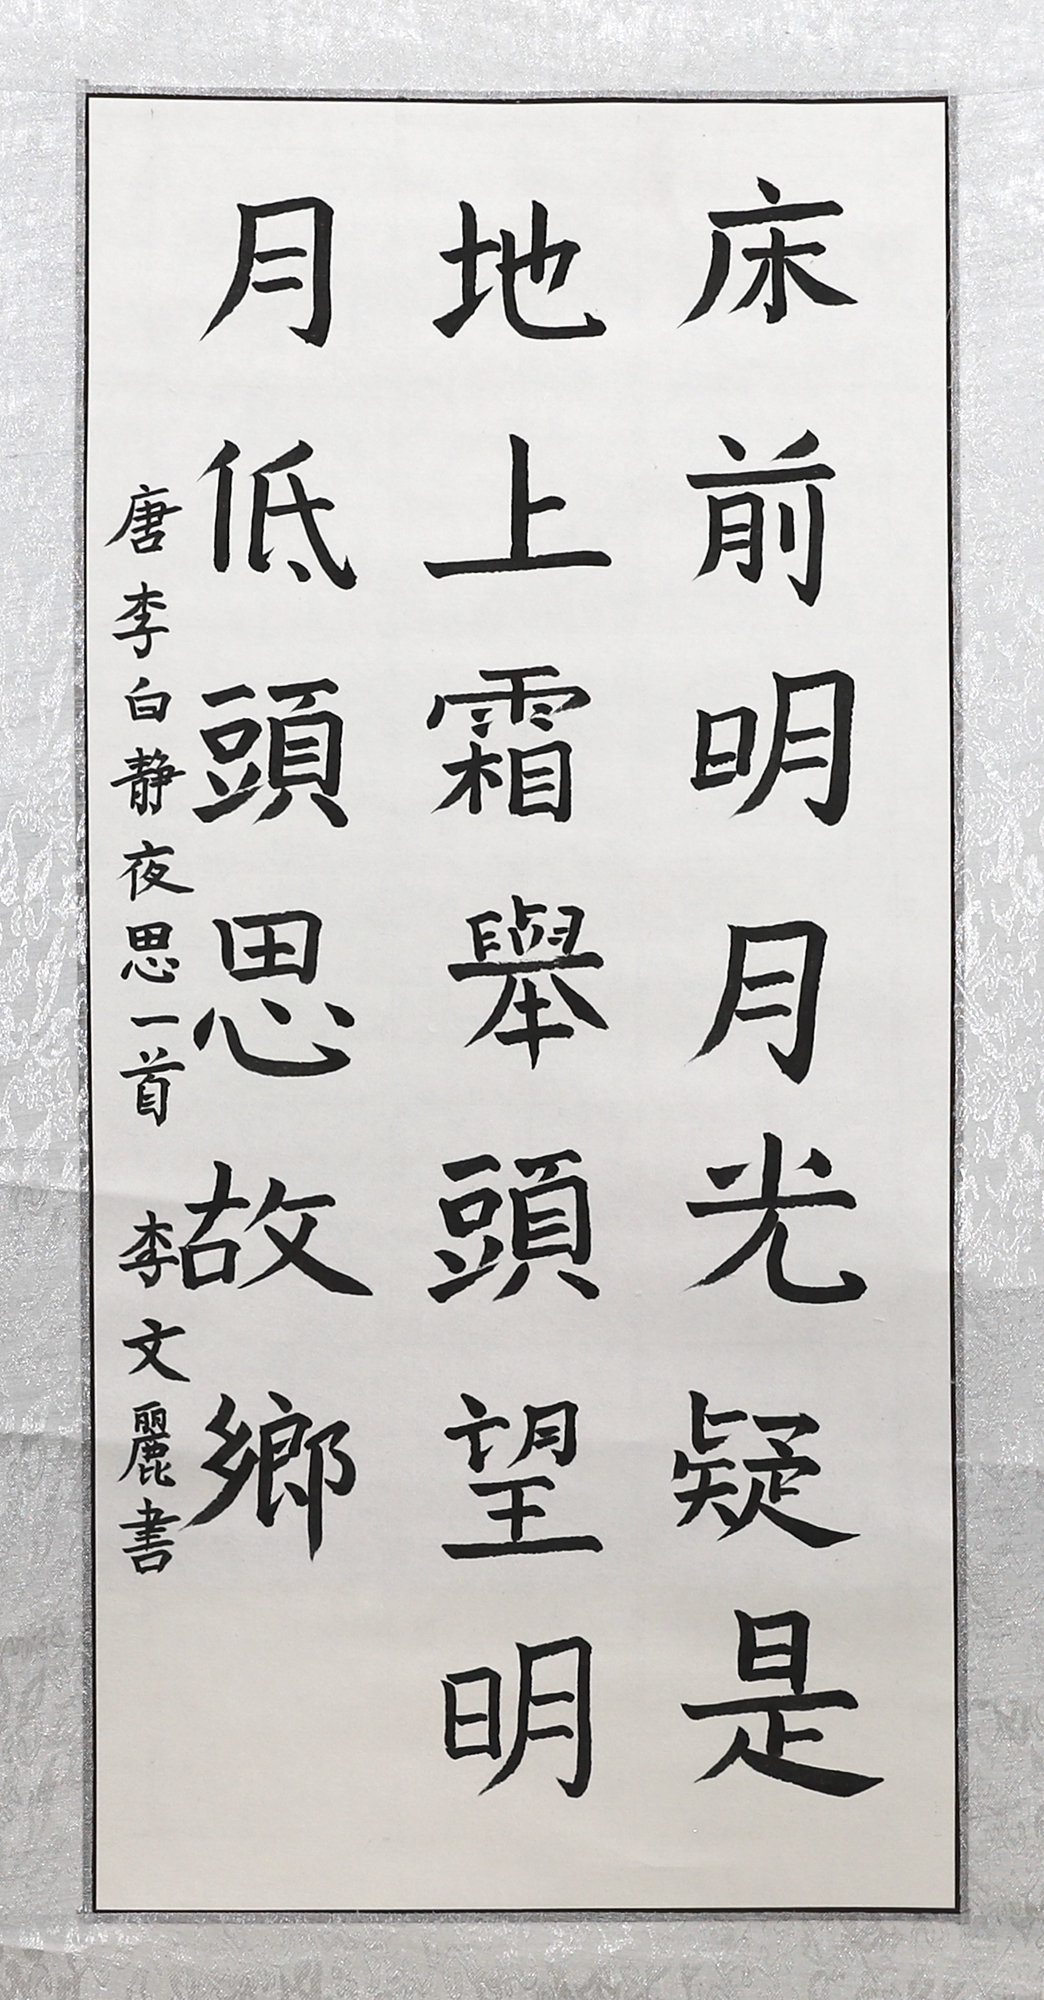 床前明月光疑是
地上霜舉頭望明
月低頭思故鄉
唐李白静夜思一首 李文麗書